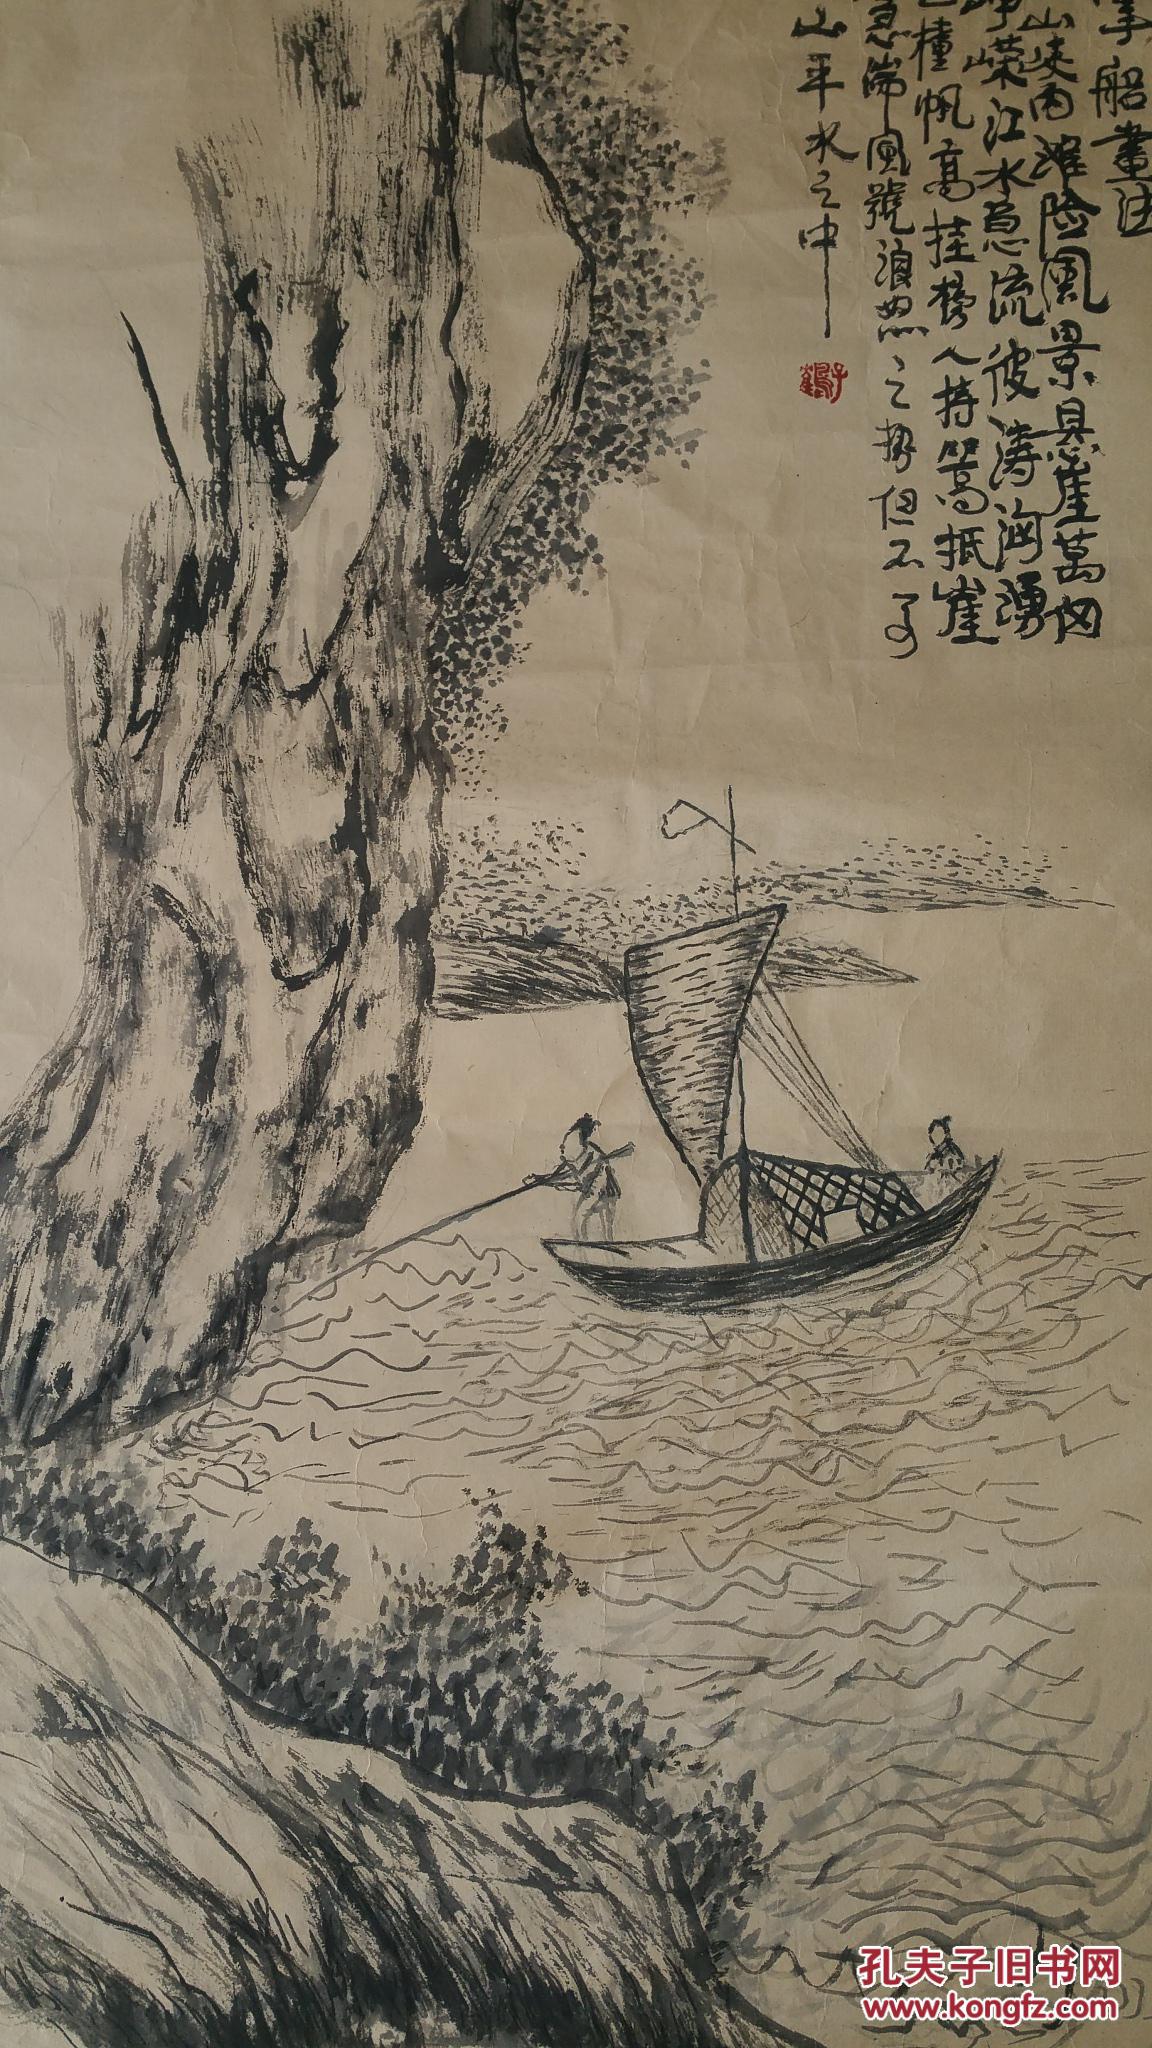 船畫法
山峽兩灘險風景悬崖萬
崢嶸江水急流彼濤洶湧
種帆高挂榜人持篙抵崖
急喘風號浪怒之势但不可
山平水之中
孔夫子旧书网
www.kongfz.com